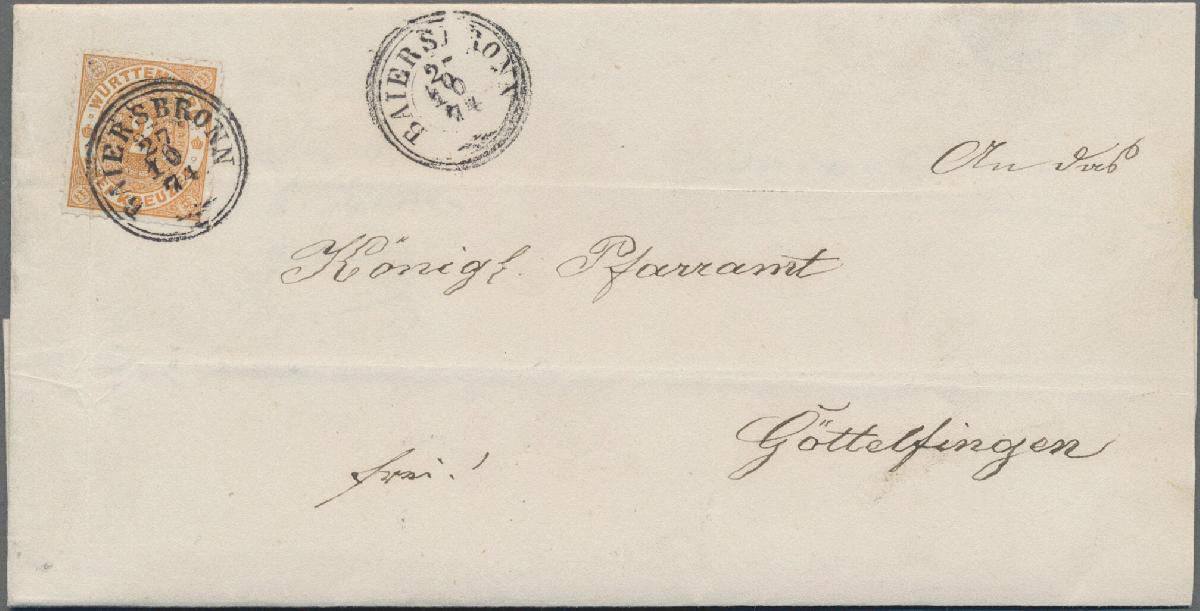 WÜRTTEM
EIN KREUZER
BAIERSBRONN
27
10
74
BAIERSBRONN
28
74
An das
Königl. Pfarramt
Göttelfingen
frei!